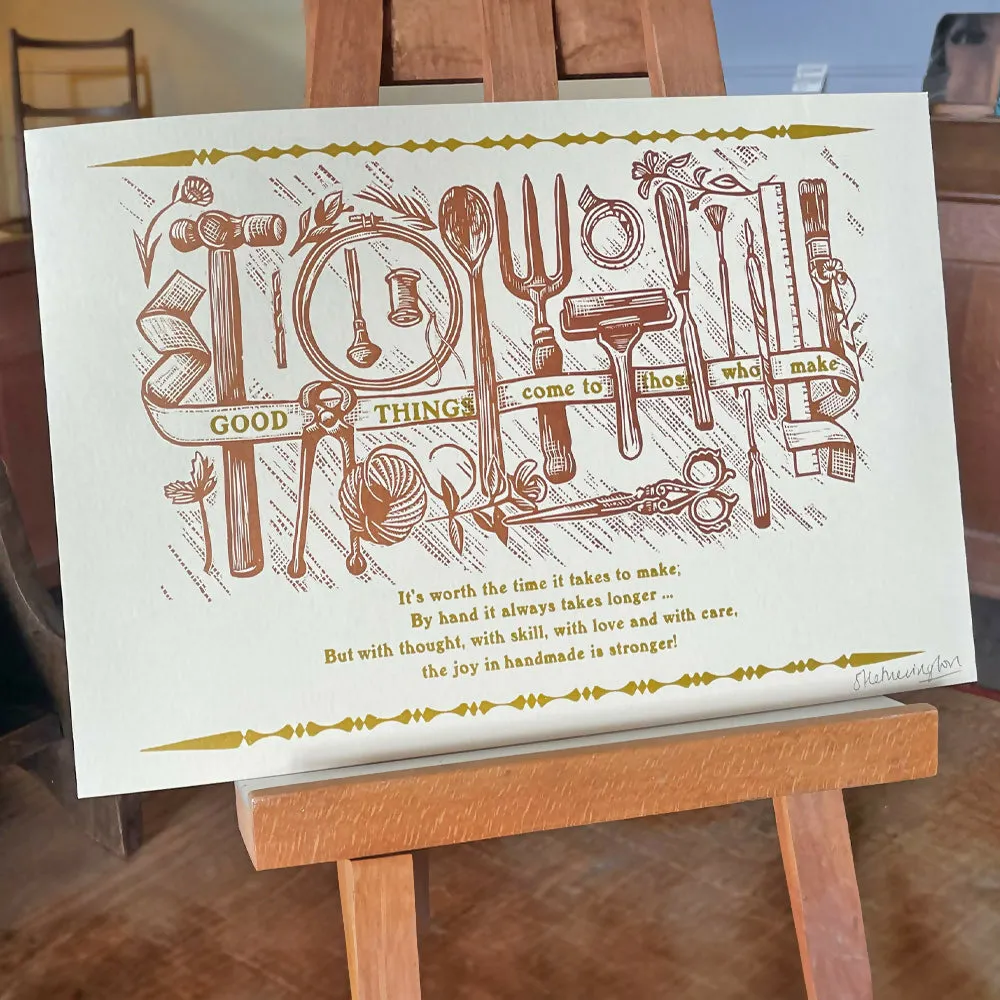 GOOD THINGS come to those who make
It's worth the time it takes to make;
By hand it always takes longer ...
But with thought, with skill, with love and with care,
the joy in handmade is stronger!